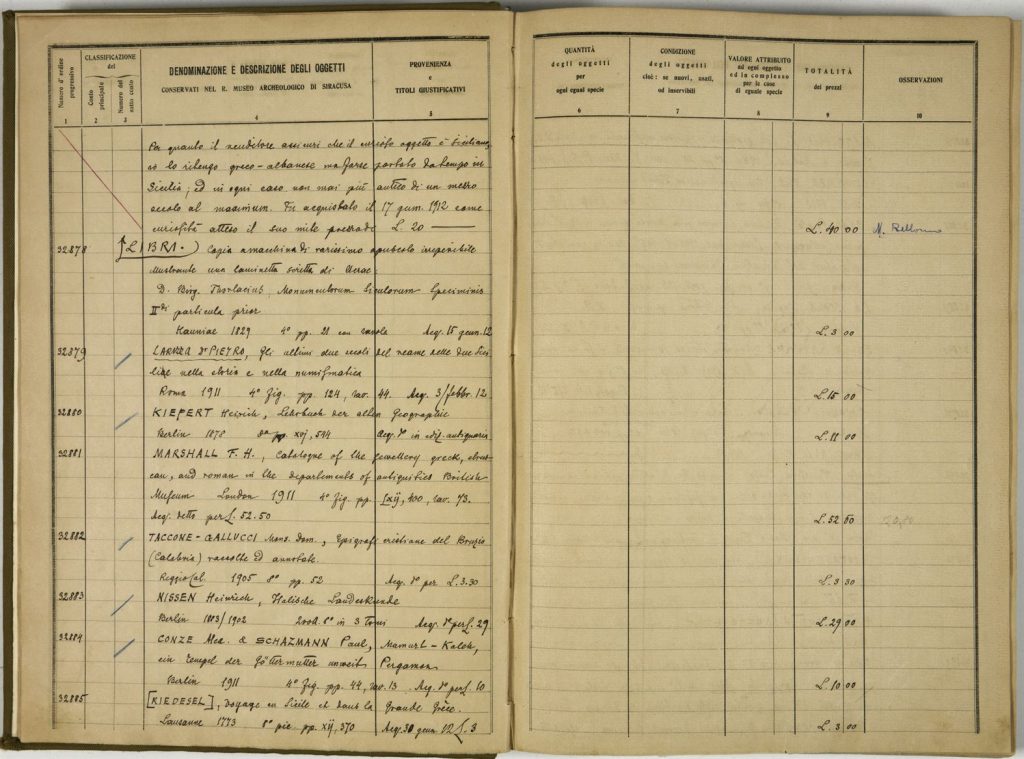 Numero d'ordine progressivo
CLASSIFICAZIONE
del
Costo principale
Numero del sotto conto
DENOMINAZIONE E DESCRIZIONE DEGLI OGGETTI
CONSERVATI NEL R. MUSEO ARCHEOLOGICO DI SIRACUSA
PROVENIENZA
e
TITOLI GIUSTIFICATIVI
1 2 3 4 5
Per quanto il venditore assicuri che il curioso oggetto è siciliano,
io lo ritengo greco-albanese ma forse portato da tempo in
Sicilia; ed in ogni caso non mai più antico di un mezzo
secolo al maximum. Fu acquistato il 17 genn. 1912 come
curiosità atteso il suo mite prezzo di L. 20
32878 (LIBRI.) Copia a macchina di rarissimo opuscolo irreperibile
illustrante una laminetta scritta di Acrae:
D. Birg. Thorlacius, Monumentorum Siculorum Speciminis
II di particula prior
Hauniae 1829 4° pp. 21 con tavola Acq. 15 genn. 12
32879 LARIZZA Dr PIETRO, Gli ultimi due secoli del reame delle due Sici
lie nella storia e nella numismatica
Roma 1911 4° fig. pp. 124, tav. 44. Acq. 3/febbr. 12
32880 KIEPERT Heinrich, Lehrbuch der alten Geographie
Berlin 1878 8° pp. XVj, 544 Acq. do in ediz. antiquaria
32881 MARSHALL F. H., Catalogue of the Jewellery greek, etrus-
can, and roman in the departments of antiquities British
Museum London 1911 4° fig. pp. lxij, 400, tav. 73.
Acq. detto per L. 52.50
32882 TACCONE-GALLUCCI Mons. Dom., Epigrafi cristiane del Bruzio
(Calabria) raccolte ed annotate
Reggio Cal. 1905 8° pp. 52 Acq. do per L. 3.30
32883 NISSEN Heinrich, Italische Landeskunde
Berlin 1883/1902 8° in 3 tomi Acq. do per L. 29
32884 CONZE Alex. & SCHAZMANN Paul, Mamurt-Kaleh,
ein Tempel der Göttermutter unweit Pergamon
Berlin 1911 4° fig. pp. 44, tav. 13 Acq. do per L. 10
32885 [RIEDESEL], Voyage en Sicile et dans la Grande Grèce.
Lausanne 1773 8° pic. pp. XIj, 370 Acq. 30 genn. 12 L. 3
QUANTITÀ
degli oggetti
per
ogni egual specie
CONDIZIONE
degli oggetti
cioè: se nuovi, usati,
od inservibili
VALORE ATTRIBUITO
ad ogni oggetto
ed in complesso
per le cose
di eguale specie
TOTALITÀ
dei prezzi
OSSERVAZIONI
6 7 8 9 10
L. 40 00
L. 3 00
L. 15 00
L. 11 00
L. 52 50
L. 3 30
L. 29 00
L. 10 00
L. 3 00